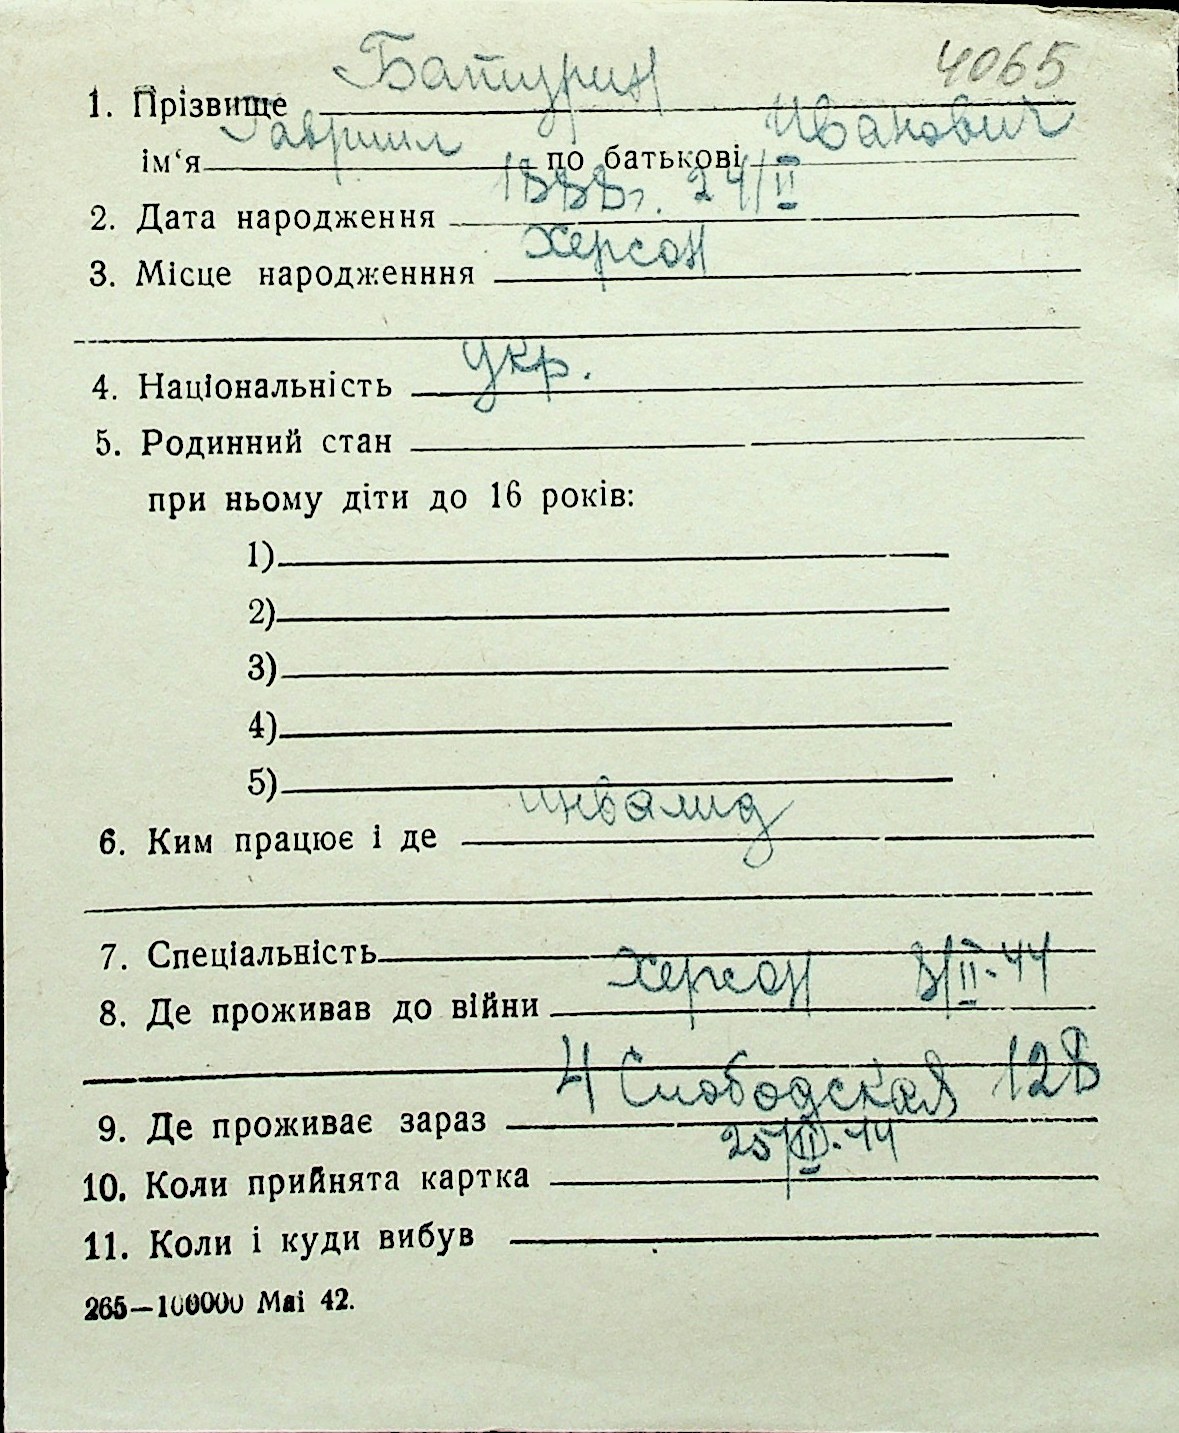 4065
1. Прізвище Батурин
ім‘я Гавриил по батькові Иванович
2. Дата народження 1888г. 24/II
3. Місце народженння Херсон
4. Національність Укр.
5. Родинний стан
при ньому діти до 16 років:
1)
2)
3)
4)
5)
6. Ким працює і де инвалид
7. Спеціальність
8. Де проживав до війни Херсон 8/II-44
9. Де проживає зараз 4 Слободская 128
10. Коли прийнята картка 25/II-44
11. Коли і куди вибув
265—100000 Mai 42.